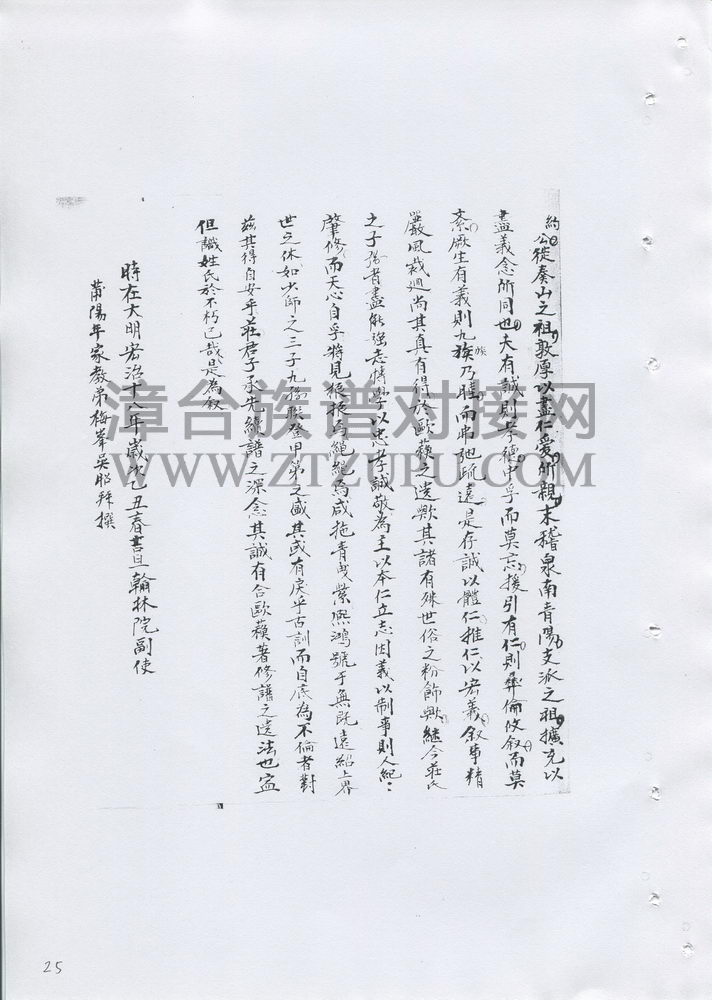 約公從奏山之祖敦厚以盡仁愛所親末稽泉南青陽支派之祖擴充以
盡義念所同也夫有誠則孝德中孚而莫忘援引有仁則彝倫攸敘而莫
紊厥生有義則九族乃睦而弗弛疏遠是存誠以體仁推仁以宏義敘事精
族
嚴風裁迥尚其真有得於歐蘇之遺歟其諸有殊世俗之粉飾歟繼今莊氏
之子孫者盡能強志博學以忠孝誠敬為主以本仁立志因義以制事則人紀
肇修而天心自孚將見振振焉繩繩焉咸拖青曳紫熙鴻號于無既遠紹上界
世之休如少師之三子九孫聯登甲第之盛其或有戾乎古訓而自底為不倫者對
茲其得自安乎莊君子承先續譜之深念其誠有合歐蘇著修譜之遺法也豈
但識姓氏於不朽已哉是為敘
時在大明宏治十八年歲次乙丑春書旦翰林院副使
莆陽年家教弟梅峯吳昭拜撰
漳台族谱对接网
WWW.ZTZUPU.COM
25